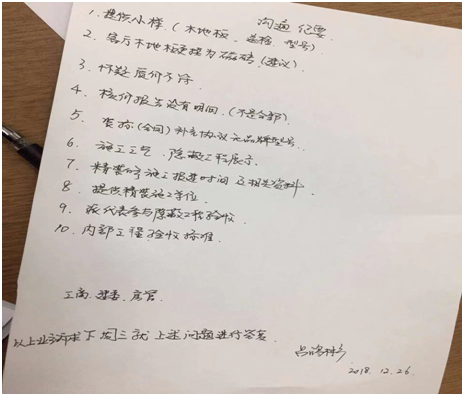 沟通纪要
1. 提供小样.(木地板、瓷砖、型号)
2. 客厅木地板更换为磁砖(建议)
3. 怀疑质价不符
4. 核价报告没有明间.(不是全部)
5. 装标(合同)补充协议无品牌型号.
6. 施工工艺.隐蔽工程展示.
7. 精装修施工报进时间及相关资料.
8. 提供精装施工单位.
9. 派代表参与隐蔽工程验收.
10. 内部工程验收标准.
工商.建委.房管
以上业主需求下周三就上述问题进行答复.
2018.12.26.